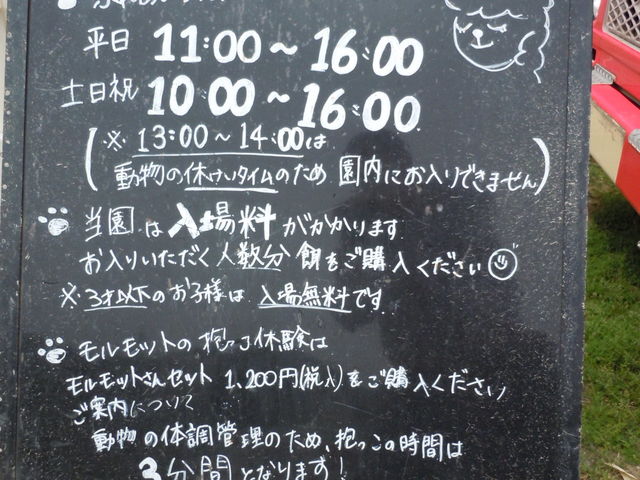 平日 11:00～16:00
土日祝 10:00～16:00
(※13:00～14:00は
動物の休けいタイムのため 園内にお入りできません)
当園は入場料がかかります
お入りいただく人数分 餌をご購入ください
※3才以下のお子様は 入場無料です
モルモットの抱っこ体験は
モルモットさんセット 1,200円(税入)をご購入ください
ご案内について
動物の体調管理のため、抱っこの時間は
3分間となります!